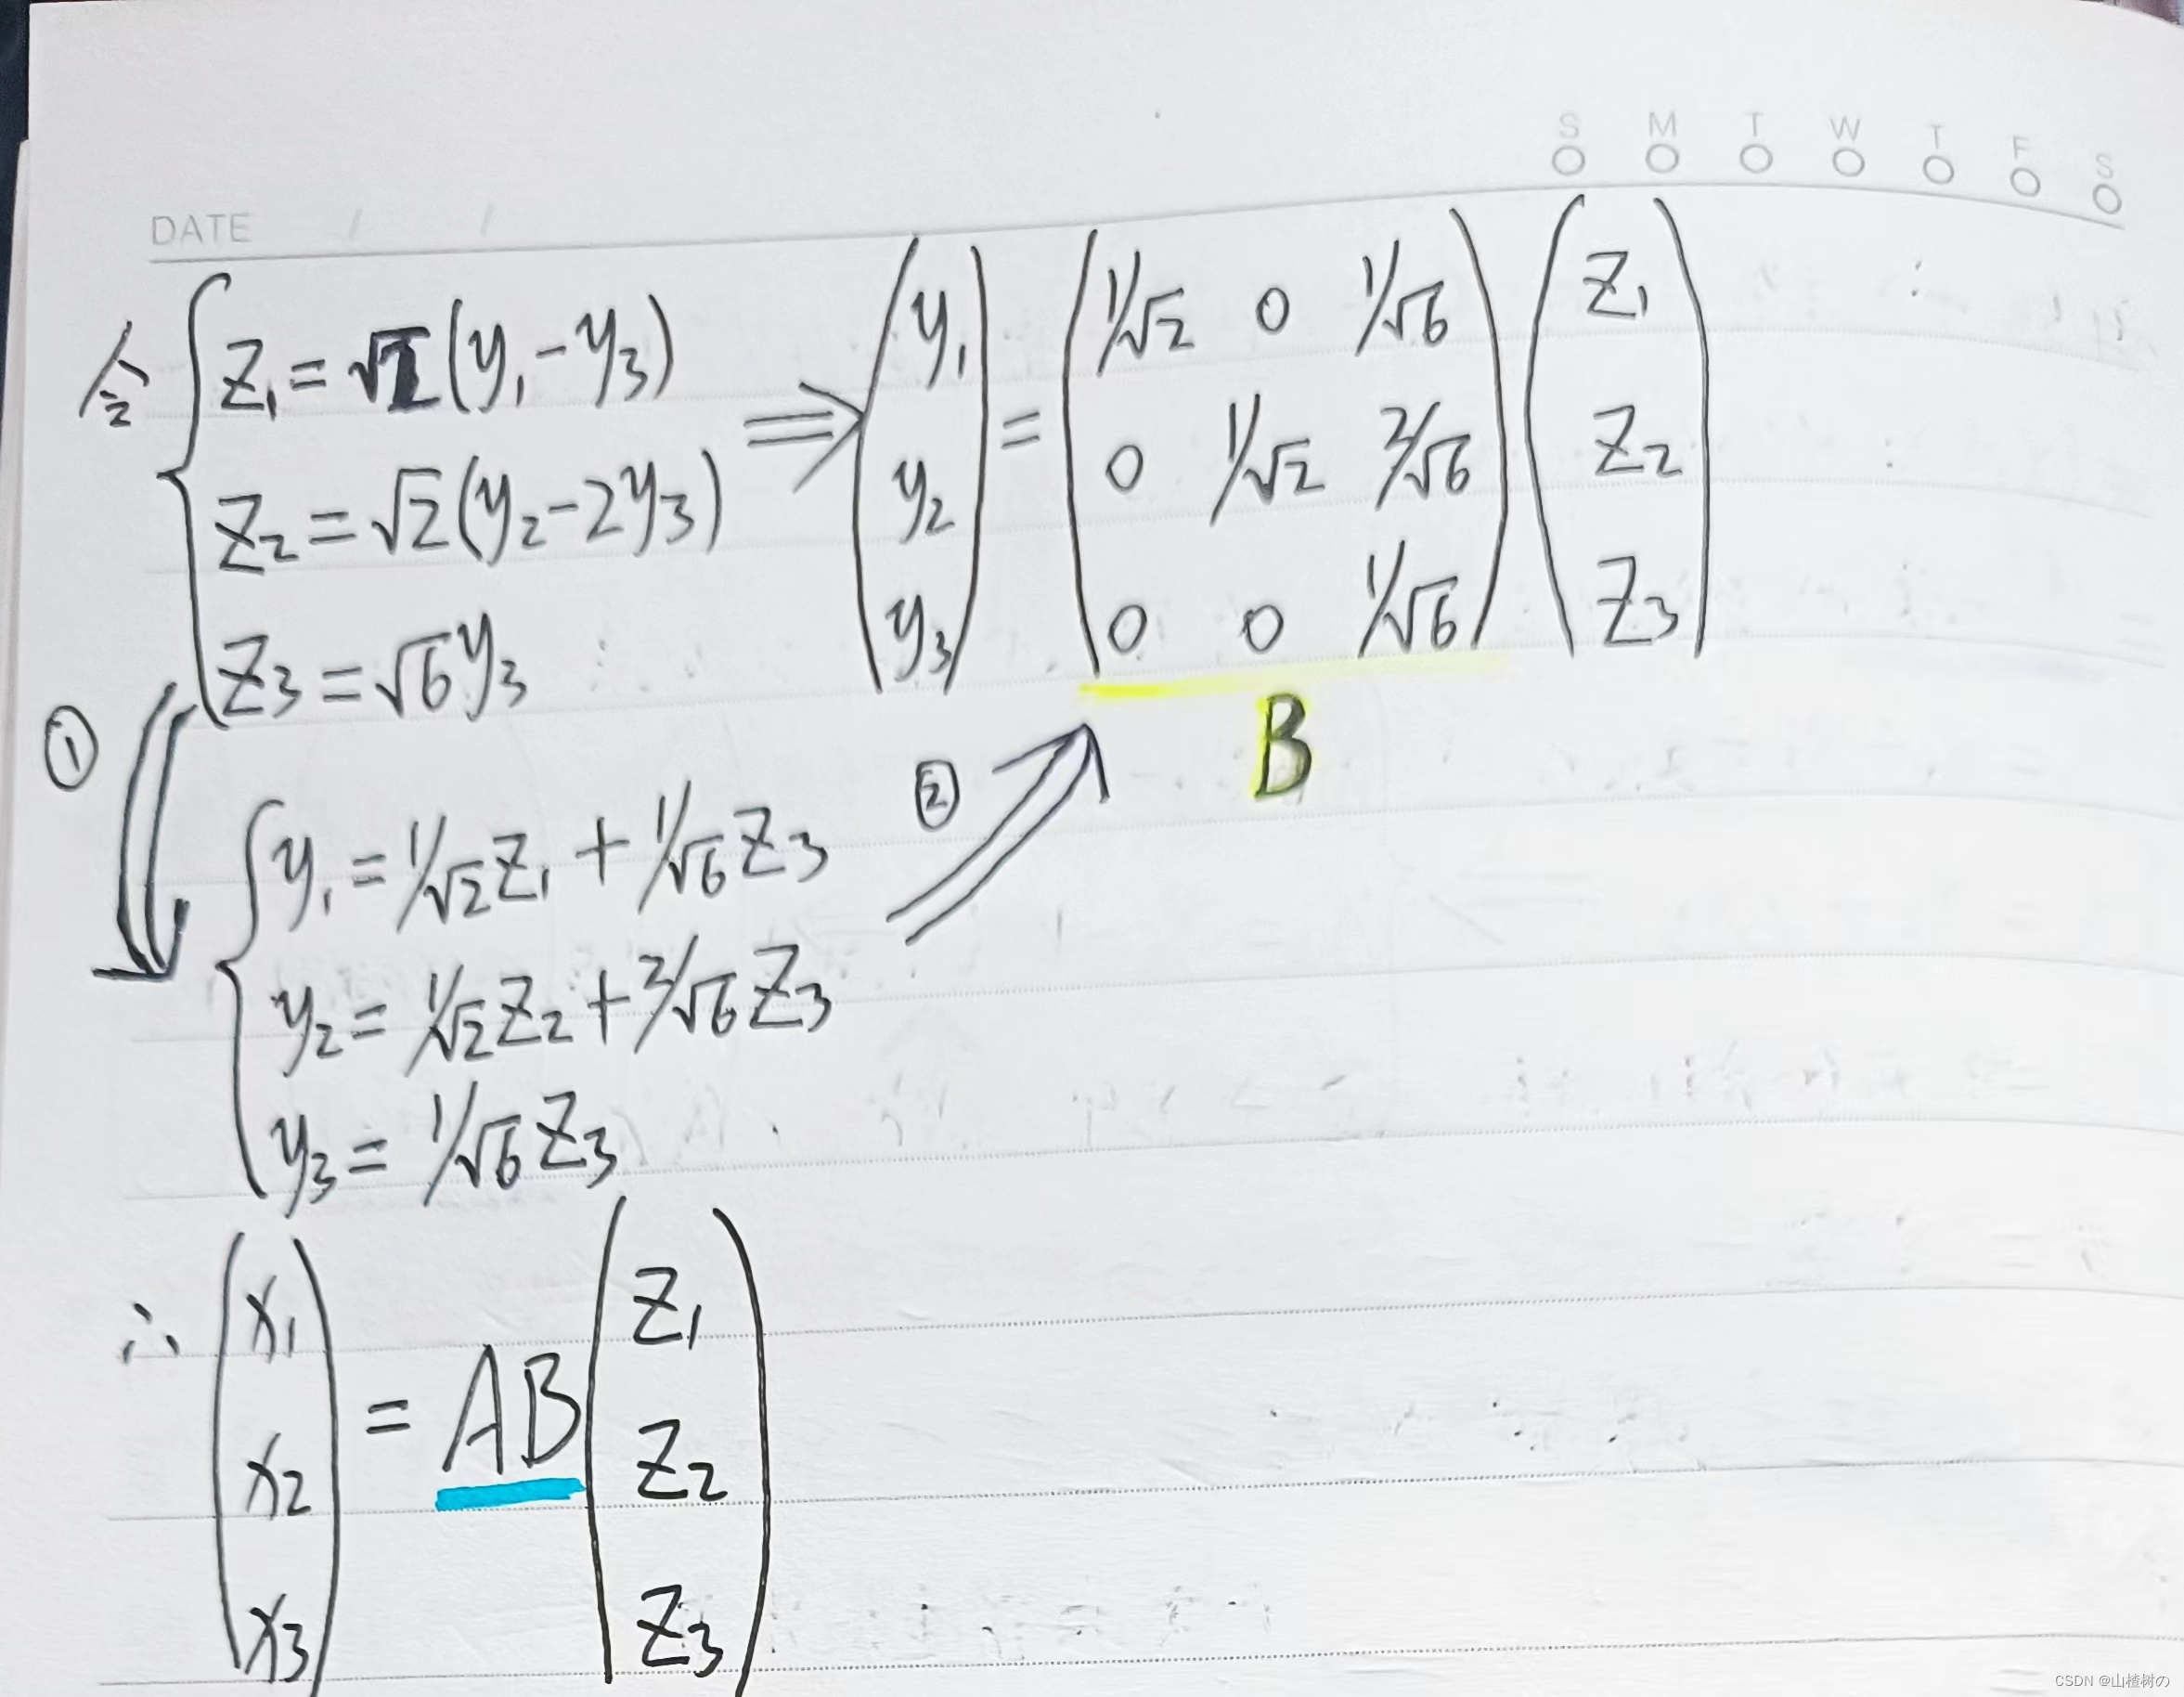 S M T W T F S
DATE / /
令 { z₁ = √2 (y₁ - y₃)
z₂ = √2 (y₂ - 2y₃)
z₃ = √6 y₃
⇒ (y₁ y₂ y₃) =
(1/√2 0 1/√6
0 1/√2 2/√6
0 0 1/√6)
(z₁
z₂
z₃)
B
① ⇓
{ y₁ = 1/√2 z₁ + 1/√6 z₃
y₂ = 1/√2 z₂ + 2/√6 z₃
y₃ = 1/√6 z₃
② ⇒
∴ (x₁ x₂ x₃) = AB (z₁ z₂ z₃)
CSDN @山楂树の